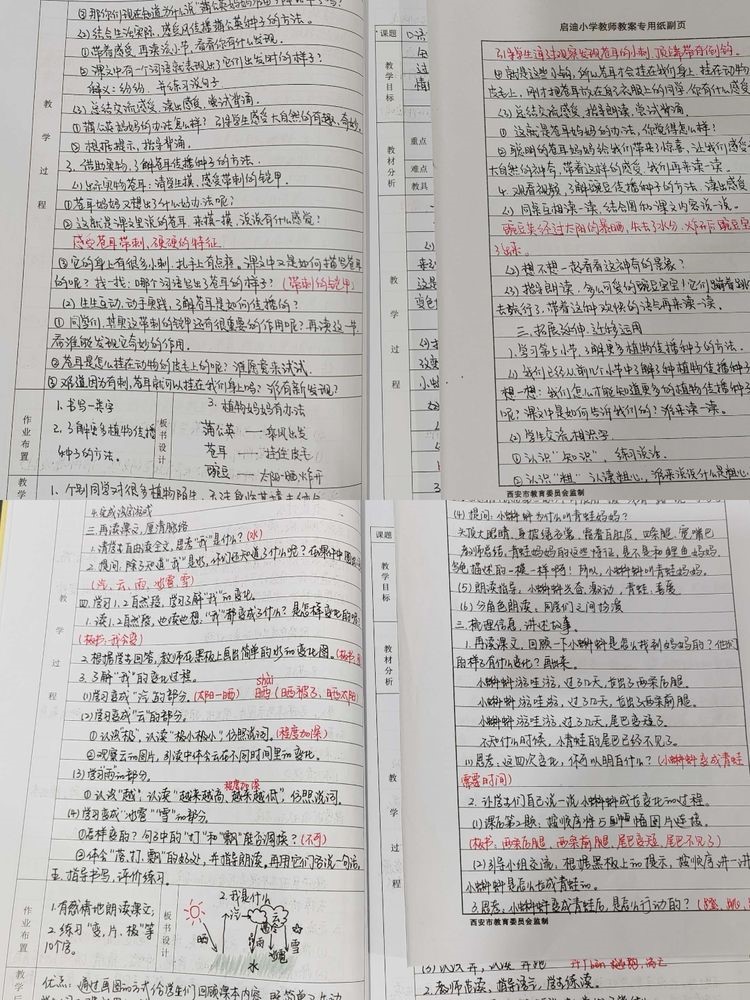 ③那你们现在知道为什么说"蒲公英妈妈准备了降落伞"了吗?
(2)结合生活实际,感受风传播蒲公英种子的方法。
①带着感受,再来读小节,看看你有什么发现。
②课文中有一个词语就表现出了它们出发时的样子?
释义:纷纷,并练习说句子
(3)总结交流感受,读出感受,尝试背诵。
①蒲公英妈妈的办法怎么样?引学生感受大自然的有趣、奇妙。
②根据提示,指导背诵。
3.借助实物,了解苍耳传播种子的方法。
(1)出示实物苍耳:请学生摸,感受带刺的铠甲。
①苍耳妈妈又想出了什么好办法呢?
②这就是课文里说的苍耳,来摸一摸,说说有什么感觉?
感受苍耳带刺,硬硬的特征
③它的身上有很多小刺,扎手上有点疼,课文中又是如何描写苍耳
的呢?找一找:哪个词语写出了苍耳的样子?(带刺的铠甲)
(2)生生互动,动手实践,了解苍耳是如何传播的?
①同学们,其实这带刺的铠甲还有很重要的作用呢?再读这一节
看谁能发现它奇妙的作用。
②苍耳是怎么挂在动物的皮毛上的呢?谁愿意来试试。
③难道因为有刺,苍耳就可以挂在我们身上吗?谁有新发现?
教学过程
作业布置
1.书写一类字
2.了解更多植物传播
种子的方法。
板书设计
3.植物妈妈有办法
蒲公英——乘风出发
苍耳——挂住皮毛
豌豆——太阳晒炸开
课题
教学目标
教材分析
重点
难点
教具
教学过程
启迪小学教师教案专用纸副页
引学生通过观察发现苍耳的小刺,顶端带有倒钩。
④就是这些小钩,所以苍耳才会挂在我们身上,挂在动物
皮毛上,刚才把苍耳放在自己衣服上的同学,你有什么感受
(3)总结交流感受,指导朗读,尝试背诵。
①这就是苍耳妈妈的办法,你觉得怎么样?
②聪明的苍耳妈妈给我们带来了惊喜,让我们感受
大自然的神奇,带着这样的感受,我们再来读一读。
4.观看视频,了解豌豆传播种子的方法,读出感受
(1)同桌互相读一读,结合图和课文内容说一说。
豌豆荚经过太阳的暴晒,失去了水分,炸开后豌豆宝
(2)想不想一起看看这神奇的景象?
(3)指导朗读,多么可爱的豌豆宝宝!它们蹦着跳
去旅行了,带着这种欢快的语气再来读一读。
三、拓展延伸,迁移运用
1.学习第5小节,了解更多植物传播种子的方法。
(1)我们已经从前几小节中了解了植物传播种子
想一想:我们怎么才能知道更多的植物传播种子
呢?课文中是如何告诉我们的?谁来读一读。
(2)学生交流,相识字
①认识"知识",练习说话
②认识"粗",认读粗心,谁来说说什么是粗心
西安市教育委员会监制
4.完成识字游戏
三、再读课文,厘清脉络
1.请学生自由读全文,思考"我"是什么?(水)
(汽、云、雨、冰雹、雪)
四、学习1、2自然段,学习了解"我"的变化。
1.读1、2自然段,边读边想:"我"都变成了什么?是怎样变化的呢?
(板书:我会变)
2.根据学生回答,教师在黑板上画出简单的水的变化图。
3.了解"我"的变化过程。
shài
(1)学习变成"汽"的部分。(太阳—晒) 晒(晒被子、晒太阳
(2)学习变成"云"的部分。
①认读"极",认读"极小极小",仿照说词。(程度加深)
②观察云的图片,引读中体会云在不同时间里的变化。
(3)学习"雨"的部分。
程度加深
①认读"越",认读"越来越高、越来越低",仿照说词。
(4)学习变成"冰雹""雪"的部分。
①怎样变的?句子中的"打"和"飘"能否调换?(不可)
②体会"落、打、飘"的好处,并指导朗读,再用它们各说一句话。
五、指导书写,评价练习。
教学过程
作业布置
1.有感情地朗读课文;
2.练习"变,片,极"等
10个字。
板书设计
2.我是什么
汽
云
晒
雨
雹
雪
水
课题
教学目标
教材分析
教学过程
(4)提问:小蝌蚪为什么叫青蛙妈妈?
头顶大眼睛,身披绿衣裳,露着白肚皮,四条腿,宽嘴巴
老师总结:青蛙妈妈的这些特征,是不是和鲤鱼妈妈
乌龟描述的一模一样啊!所以,小蝌蚪叫青蛙妈妈。
(5)朗读指导,小蝌蚪:兴奋,激动,青蛙:喜爱
(6)分角色朗读,同学们之间扮演
三、梳理信息,讲述故事。
1.再读课文,回顾一下小蝌蚪是怎么找到妈妈的?他们
的样子有什么变化?画出来。
小蝌蚪游哇游,过了几天,长出了两条后腿。
小蝌蚪游哇游,过了几天,长出了两条前腿。
小蝌蚪游哇游,过了几天,尾巴变短了。
不知什么时候,小青蛙的尾巴已经不见了。
(1)思考,这四次变化,你可以明白什么?(小蝌蚪变成青蛙
需要时间)
2.让学生们自己说一说小蝌蚪成长变化的过程。
(1)课后第2题:按顺序将5幅图片连接。
(板书:两条后腿,两条前腿,尾巴变短,尾巴不见了)
(2)引导小组交流,根据黑板上的提示,按顺序讲一讲
小蝌蚪是怎么长成青蛙的。
3.思考:小蝌蚪变成青蛙后,是怎么行动的?
西安市教育委员会监制
2.教师范读,指导语气,学生练读。